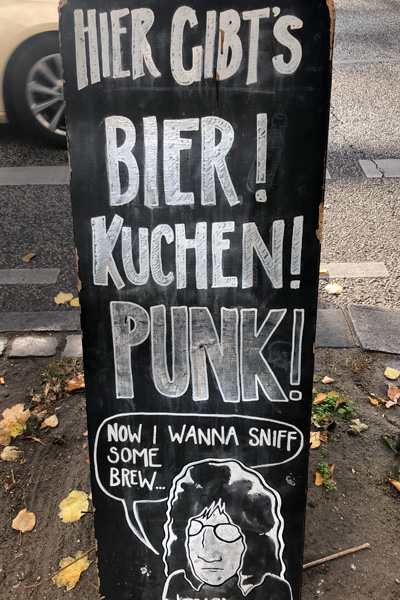 HIER GIBT'S
BIER!
KUCHEN!
PUNK!
NOW I WANNA SNIFF
SOME
BREW...